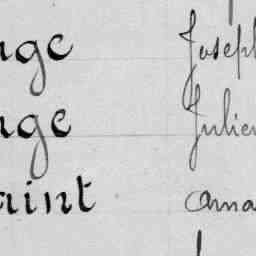 uge Joseph
uge Julien
aint Ama